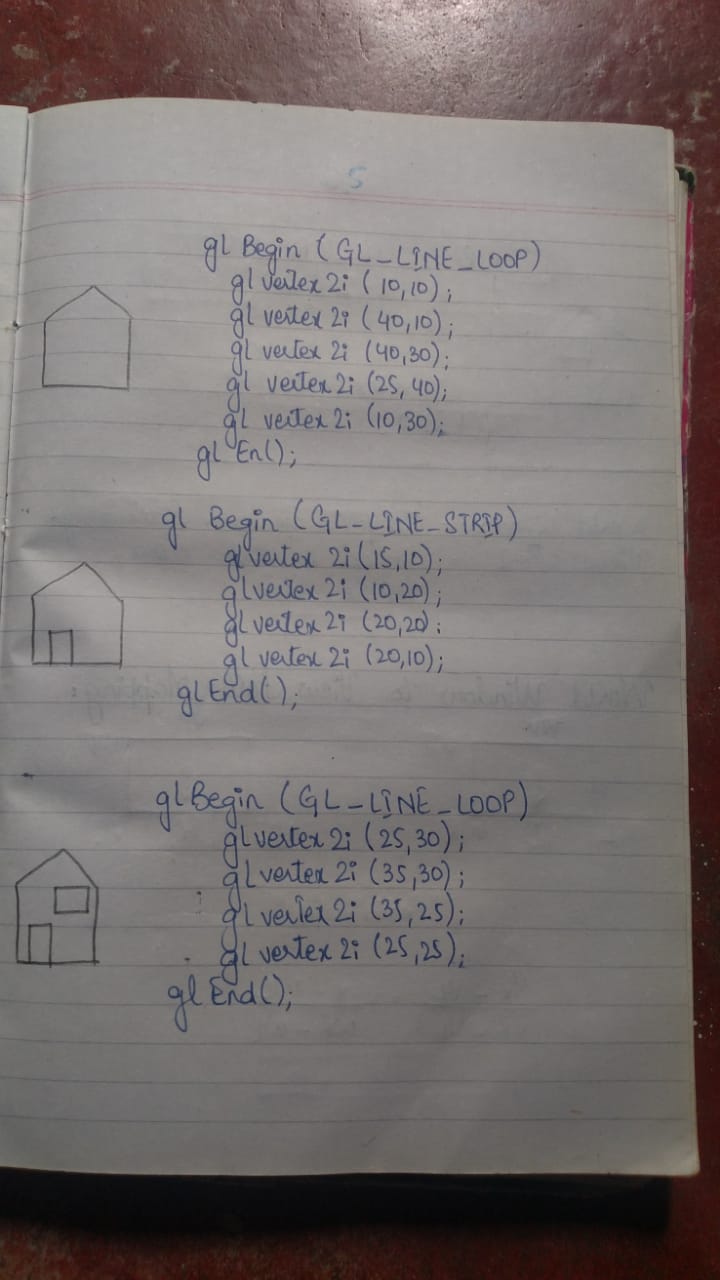 5
gl Begin (GL_LINE_LOOP)
gl vertex 2i (10,10);
gl vertex 2i (40,10);
gl vertex 2i (40,30);
gl vertex 2i (25,40);
gl vertex 2i (10,30);
gl En();
gl Begin (GL_LINE_STRIP)
gl vertex 2i (15,10);
gl vertex 2i (10,20);
gl vertex 2i (20,20);
gl vertex 2i (20,10);
gl End();
gl Begin (GL_LINE_LOOP)
gl vertex 2i (25,30);
gl vertex 2i (35,30);
gl vertex 2i (35,25);
gl vertex 2i (25,25);
gl End();